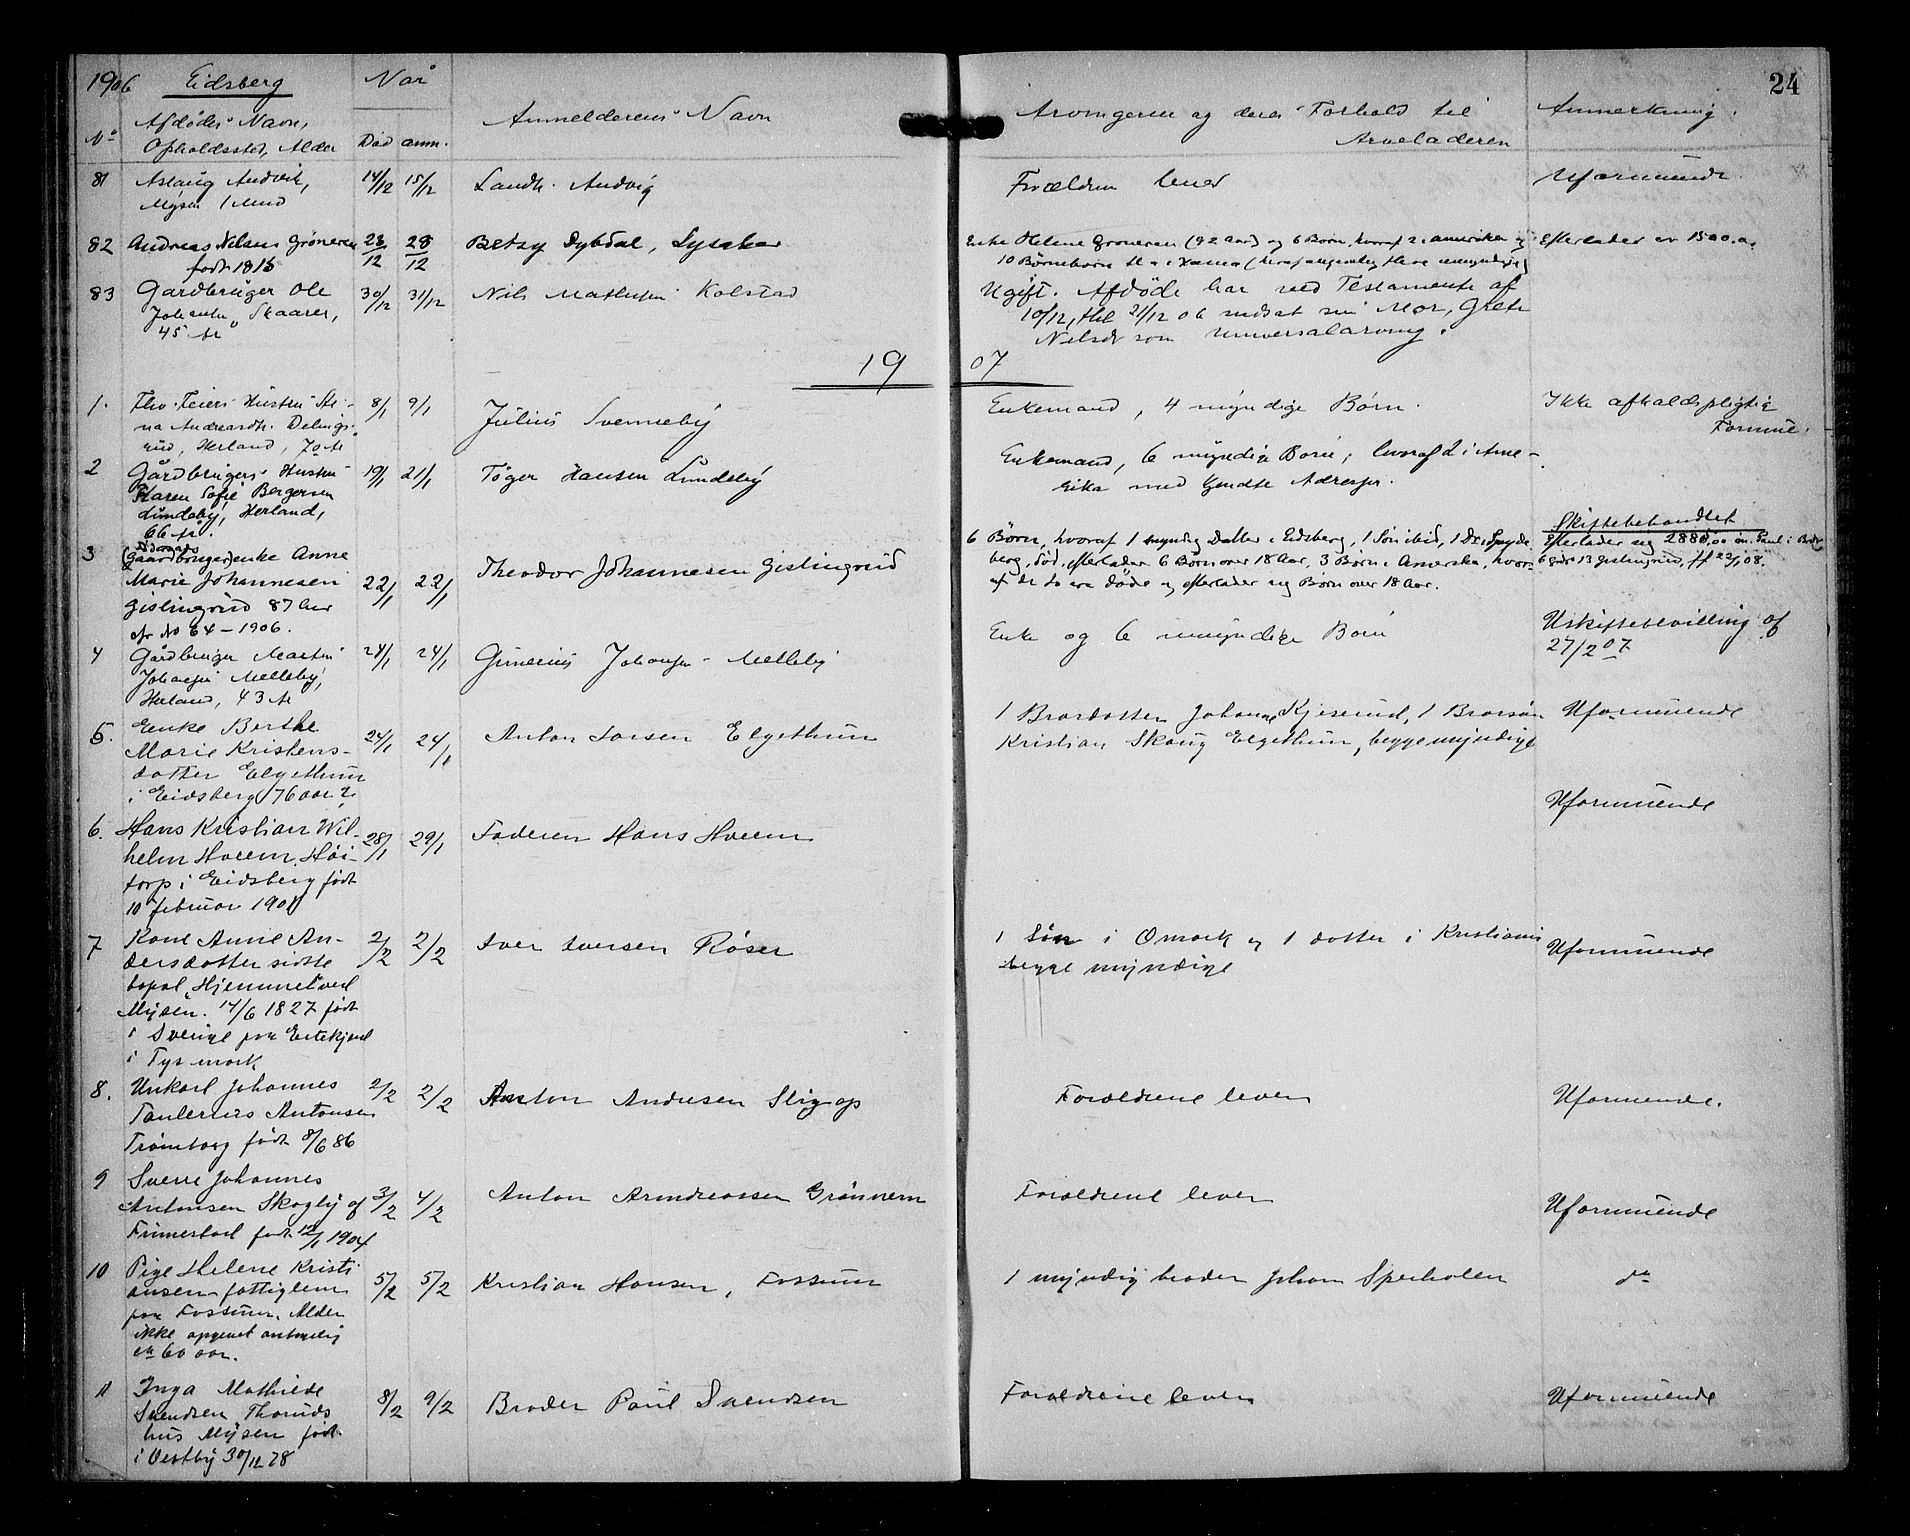 1906 Eidsberg Når 24
No Afdødes Navn, Opholdssted, Alder Død anm. Anmelderens Navn Arvingerne og deres Forhold til Arveladeren Anmerkning.
81 Aslaug Andvik, 14/12 15/12 Landh. Andvig Forældrene lever Uformuende
Mysen 1 Mnd
82 Andreas Nilsen Grøneren 23/12 28/12 Betsy Dybdal, Enke Helene Groneren (92 Aar) og 6 Børn, hvoraf 2 i Amerika og Efterlader ca 1500.00
født 1815 10 Børnebørn
83 Gardbruger Ole 30/12 31/12 Nils Mathisen Kolstad Ugift. Afdøde har ved Testamente af
Johansen Skaarer, 10/12, thl 21/12 06 indsat sin Mor, Grete
45 År Nilsdr som universalarving.
1907
1. Fhv. Feiers Hustru Sti- 8/1 9/1 Julius Svenneby Enkemand, 4 myndige Børn. Ikke afholdspligtig
na Andreasdtr. Delings- Formue.
rud, Herland, 70 År
2 Gårdbrugers Hustru 19/1 21/1 Tøger Hansen Lundeby Enkemand, 6 myndige Børn; hvoraf 2 i Ame-
Karen Sofie Bergersen rika med kjendte Adresser.
Lundeby, Herland,
66 År.
3 (Gaardbruger)enke Anne 22/1 22/1 Theodor Johannesen Gislingrud 6 Børn, hvoraf 1 myndig Datter i Eidsberg, 1 Søn ibid, 1 Do i Spyde- Skiftebehandlet
Marie Johannesen berg, død, efterlader 6 Børn over 18 Aar, 3 Børn i Amerika, hvor- Efterlader sig 2880,00
Gislingrud 87 Aar af de to ere døde og efterlader sig Børn over 18 Aar. Gislingrud, 22/1 08.
cfr No 64 – 1906.
4 Gårdbruger Martin 24/1 24/1 Gunerius Johansen Melleby Enke og 6 umyndige Børn Uskiftebevilling af
Johansen Melleby, 27/2 07
Herland, 43 År
5. Enke Berthe 24/1 24/1 Anton Larsen Elgethun 1 Brordatter Johanne Kjeserud, 1 Brorsøn Uformuende
Marie Kristens- Kristian Skaug Elgethun, begge myndige
datter Elgethun
i Eidsberg 76 aar
6. Hans Kristian Wil- 28/1 29/1 Faderen Hans Hveem Uformuende
helm Hveem, Høi-
torp i Eidsberg født
10 februar 1901
7 Kone Anne An- 2/2 2/2 Iver Iversen Røser 1 Søn i Omark og 1 datter i Kristiania Uformuende
dersdatter sidste begge myndige
bopæl „Hjemmet" ved
Mysen. 14/6 1827 født
i Sverige paa
i
8. Unkarl Johannes 2/2 2/2 Anton Andresen Forældrene lever Uformuende.
Antonsen
Trømborg født 8/6 86
9 Sverre Johannes 3/2 4/2 Anton Armdreassen Grønnern Forældrene lever Uformuende
Antonsen Skogly af
Finnestad født 12/1 1904
10 Pige Helene Kristi- 5/2 5/2 Kristian Hansen, Fossum 1 myndig broder Johan Sperholen do
ansen fattiglem
paa Fossum. Alder
ikke opgivet antagelig
ca 60 aar.
11 Inga Mathilde 8/2 9/2 Broder Paul Svendsen Forældrene lever Uformuende
Svendsen Thoruds
hus Mysen født
i Vestby 30/12 78